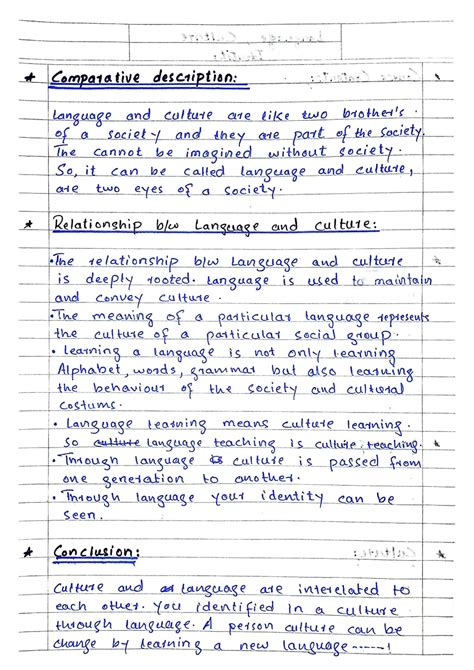 Language, Culture
Identity
* Comparative description:
Language and culture are like two brother's
of a society and they are part of the society.
The cannot be imagined without society.
So, it can be called language and culture,
are two eyes of a society.
* Relationship b/w Language and culture:
• The relationship b/w Language and culture
is deeply rooted. Language is used to maintain
and convey culture.
• The meaning of a particular language represents
the culture of a particular social group.
• Learning a language is not only learning
Alphabet, words, grammar but also learning
the behaviour of the society and cultural
costums.
• Language learning means culture learning.
So culture language teaching is culture teaching.
• Through language culture is passed from
one generation to another.
• Through language your identity can be
seen.
* Conclusion:
Culture and language are interelated to
each other. You identified in a culture
through language. A person culture can be
change by learning a new language-----!